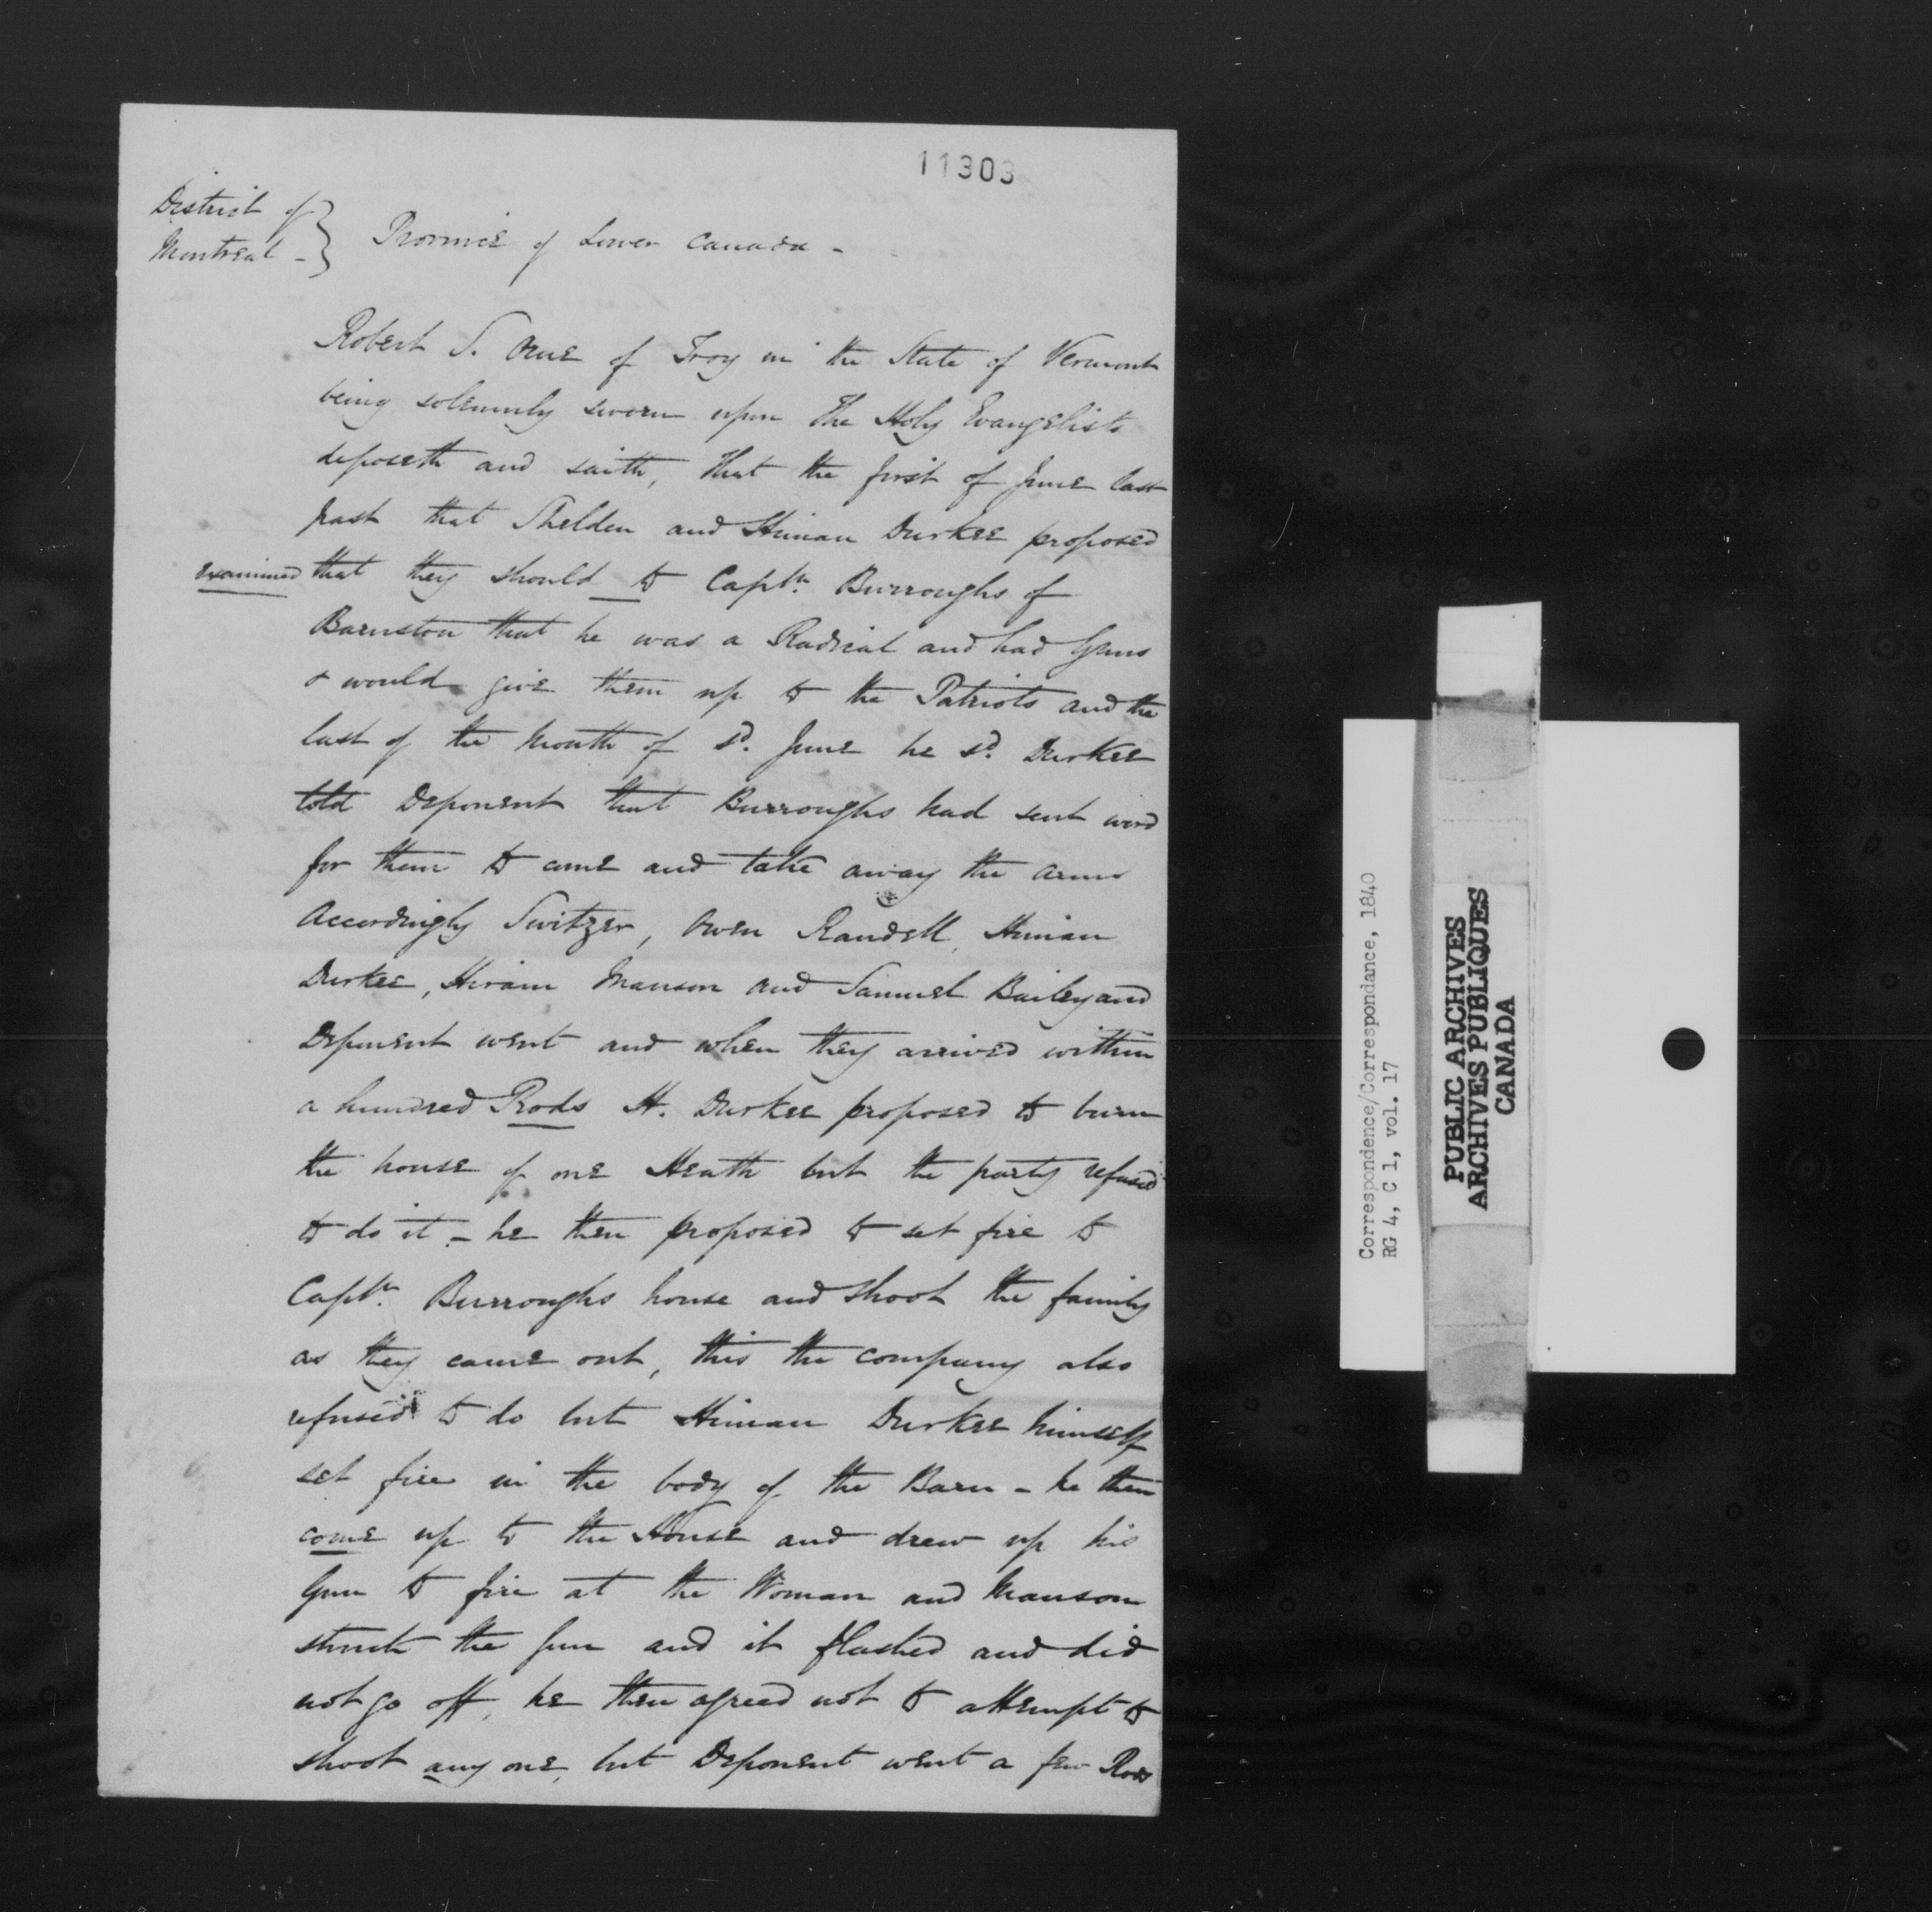 11303
District of } Province of Lower Canada -
Montreal - }
Robert S. Orne of Troy in the State of Vermont
being solemnly sworn upon The Holy Evangelists
deposeth and saith, that the first of June last
past that Shelden and Himan Durkee proposed
examined that they should to Captn. Burroughs of
Barnston that he was a Radical and had Guns
& would give them up to the Patriots and the
last of the Month of sd. June he sd. Durkee
told Deponent that Burroughs had sent word
for them to come and take away the arms
Accordingly Switzer, Owen Randell, Himan
Durkee, Hiram Manson and Samuel Bailey and
Deponent went and when they arrived within
a hundred Rods H. Durkee proposed to burn
the house of one Heath but the party refused
to do it - he then proposed to set fire to
Captn. Burroughs house and shoot the family
as they came out, this the company also
refused to do but Himan Durkee himself
set fire in the body of the Barn - he then
come up to the House and drew up his
Gun to fire at the Woman and Manson
struck the Gun and it flashed and did
not go off, he then agreed not to attempt to
shoot any one, but Deponent went a few Rods
Correspondence/Correspondance, 1840
RG 4, C 1, vol. 17
PUBLIC ARCHIVES
ARCHIVES PUBLIQUES
CANADA